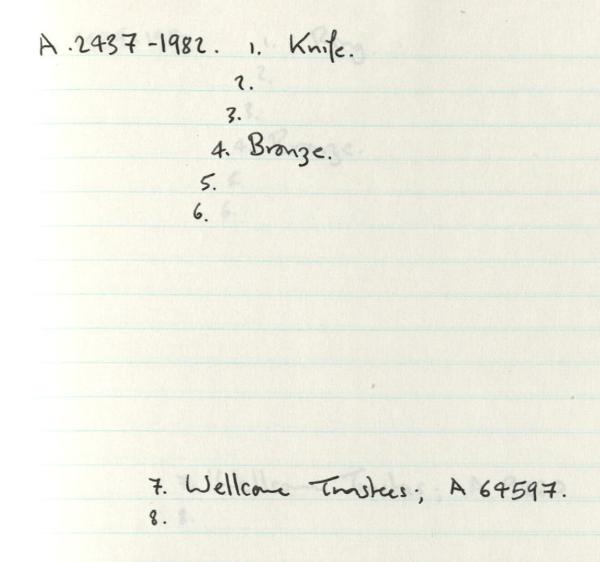 A.2437-1982. 1. Knife.
2.
3.
4. Bronze.
5.
6.
7. Wellcome Trustees; A 64597.
8.